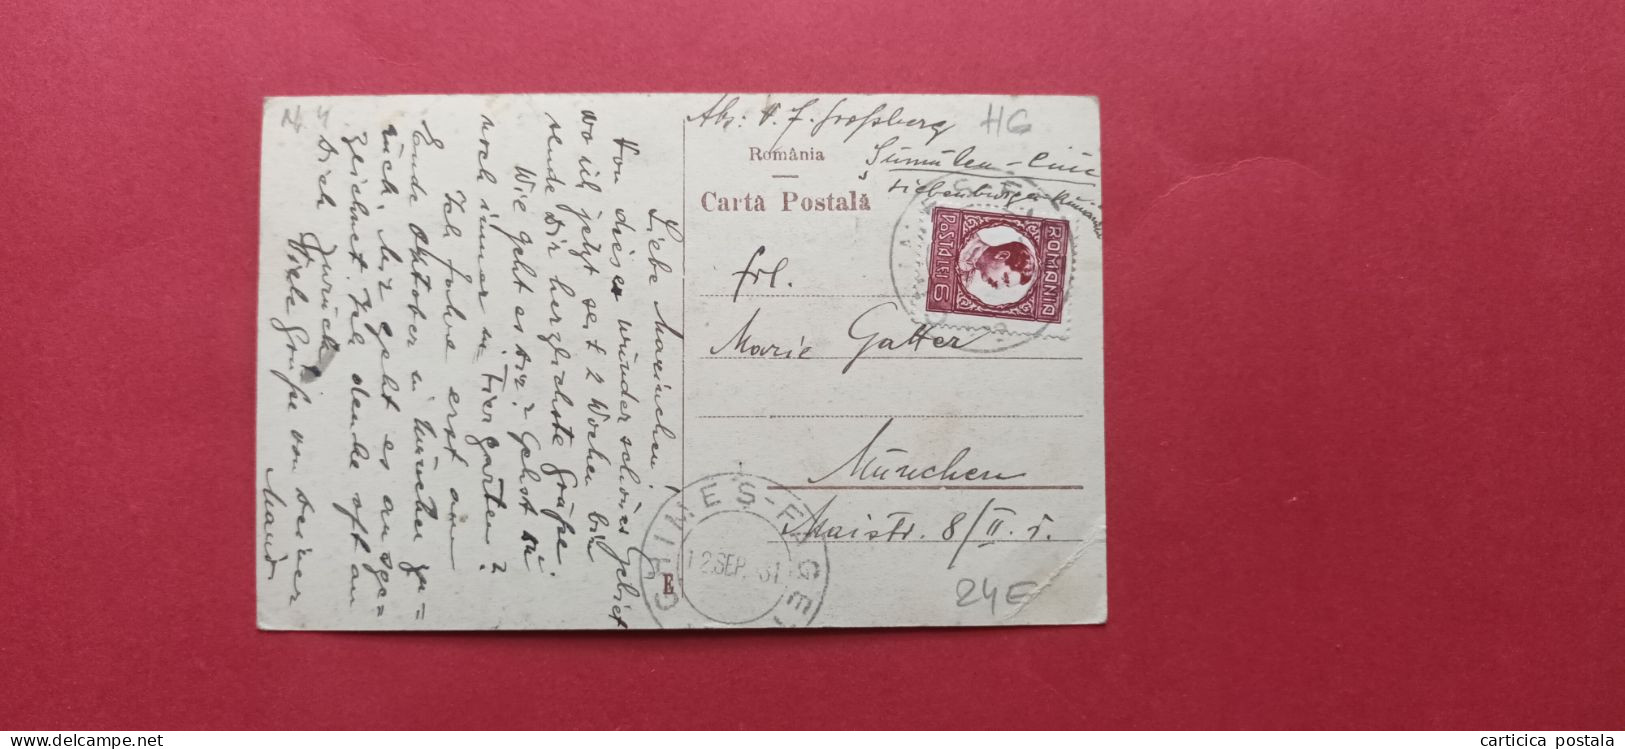 N 4
Liebe Mariechen!
Von dieser wunderschönen Gebiet
wo ich jetzt seit 2 Wochen bin
sende Dir herzlichste Grüße.
Wie geht es Dir? Gehst Du
noch immer in Tiergarten?
Ich fahre erst am
Ende Oktober in München zu=
rück. Mir geht es ausge=
zeichnet. Ich denke oft an
Dich zurück!
Viele Grüße von Deiner
Abs: F. Großberg
HG
România
Carta Postală
Siebenbürgen
ROMANIA
POSTA LEI 6
Frl.
Marie Gatter
München
Maistr. 8/II. r.
GHIMES-FAGET
12 SEP. 31
E
24E
www.delcampe.net
carticica postala